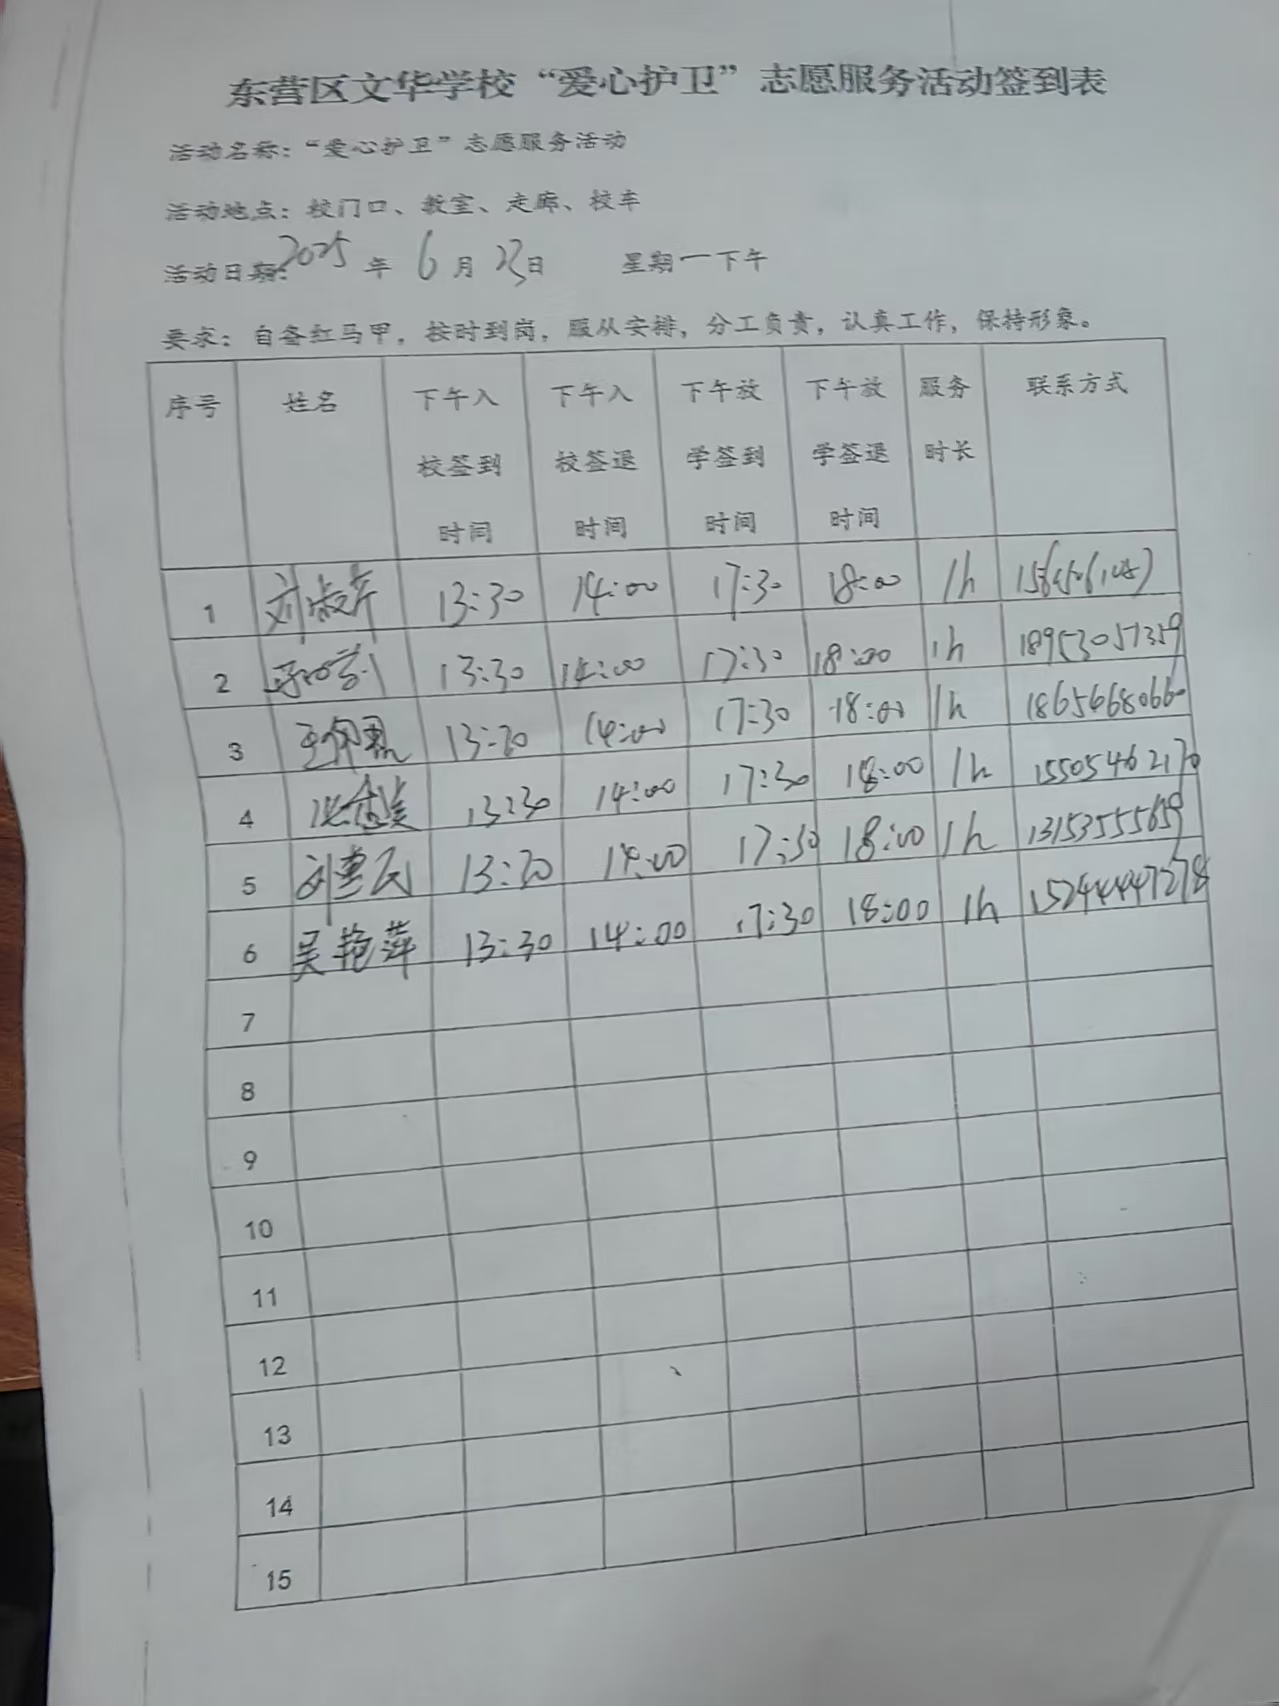 东营区文华学校“爱心护卫”志愿服务活动签到表
活动名称：“爱心护卫”志愿服务活动
活动地点：校门口、教室、走廊、校车
活动日期：2025年 6月 23日 星期一下午
要求：自备红马甲，按时到岗，服从安排，分工负责，认真工作，保持形象。
序号 姓名 下午入校签到时间 下午入校签退时间 下午放学签到时间 下午放学签退时间 服务时长 联系方式
1 刘淑芹 13:30 14:00 17:30 18:00 1h
2 13:30 14:00 17:30 18:00 1h 18953057359
3 13:30 14:00 17:30 18:00 1h 18656680660
4 13:30 14:00 17:30 18:00 1h 15505462170
5 13:30 14:00 17:30 18:00 1h 13153555659
6 吴艳萍 13:30 14:00 17:30 18:00 1h 15244447278
7
8
9
10
11
12
13
14
15